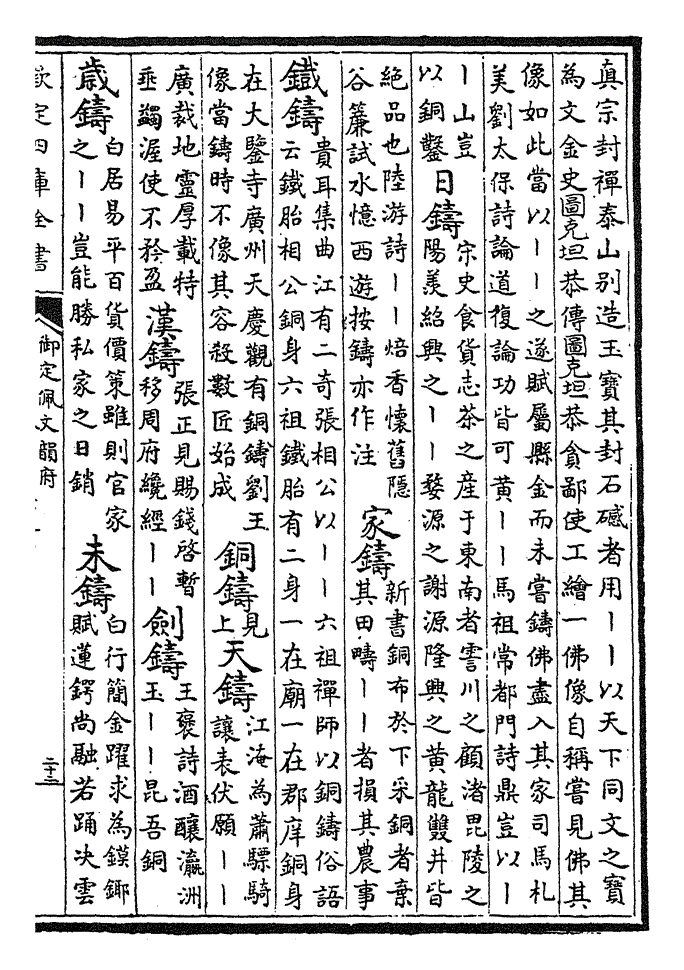 真宗封禪泰山别造玉寶其封石䃭者用丨丨以天下同文之寶
為文金史圖克坦恭傳圖克坦恭貪鄙使工繪一佛像自稱嘗見佛其
像如此當以丨丨之遂賦屬縣金而未嘗鑄佛盡入其家司馬札
美劉太保詩論道復論功皆可黄丨丨馬祖常都門詩鼎豈以丨
丨山豈
以銅鑿
日鑄
宋史食貨志茶之産于東南者霅川之顧渚毘陵之
陽羨紹興之丨丨婺源之謝源隆興之黄龍雙井皆
絶品也陸游詩丨丨焙香懷舊隱
谷簾試水憶西遊按鑄亦作注
家鑄
新書銅布於下采銅者棄
其田疇丨丨者損其農事
鐵鑄
貴耳集曲江有二奇張相公以丨丨六祖禪師以銅鑄俗語
云鐵胎相公銅身六祖鐵胎有二身一在廟一在郡庠銅身
在大鑒寺廣州天慶觀有銅鑄劉王
像當鑄時不像其容殺數匠始成
銅鑄
見
上
天鑄
江淹為蕭驃騎
讓表伏願丨丨
廣裁地靈厚載特
垂蠲渥使不矜盈
漢鑄
張正見賜錢啓暫
移周府纔經丨丨
劍鑄
王褒詩酒釀瀛洲
玉丨丨昆吾銅
歲鑄
白居易平百貨價策雖則官家
之丨丨豈能勝私家之日銷
未鑄
白行簡金躍求為鏌鎁
賦蓮鍔尚融若踊決雲
欽定四庫全書
御定佩文韻府
二十三